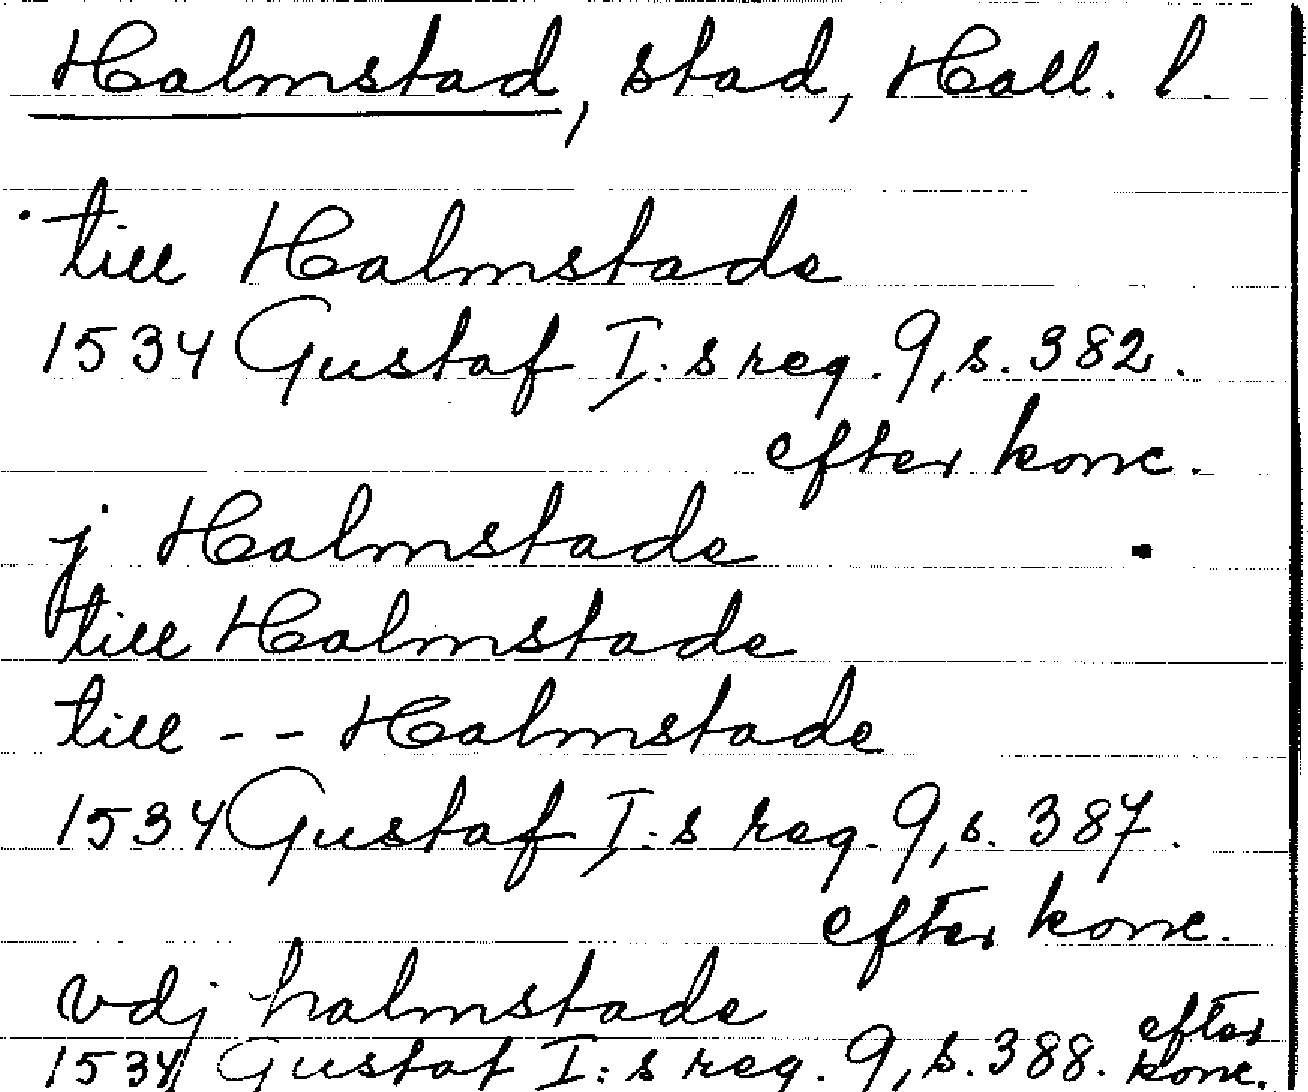 Halmstad, stad, Hall. l.
till Halmstade
1534 Gustaf I:s reg. 9, s. 382.
efter konc.
j Halmstade
till Halmstade
till -- Halmstade
1534 Gustaf I:s reg. 9, s. 387.
efter konc.
vdj halmstade
1534 Gustaf I:s reg. 9, s. 388. efter konc.